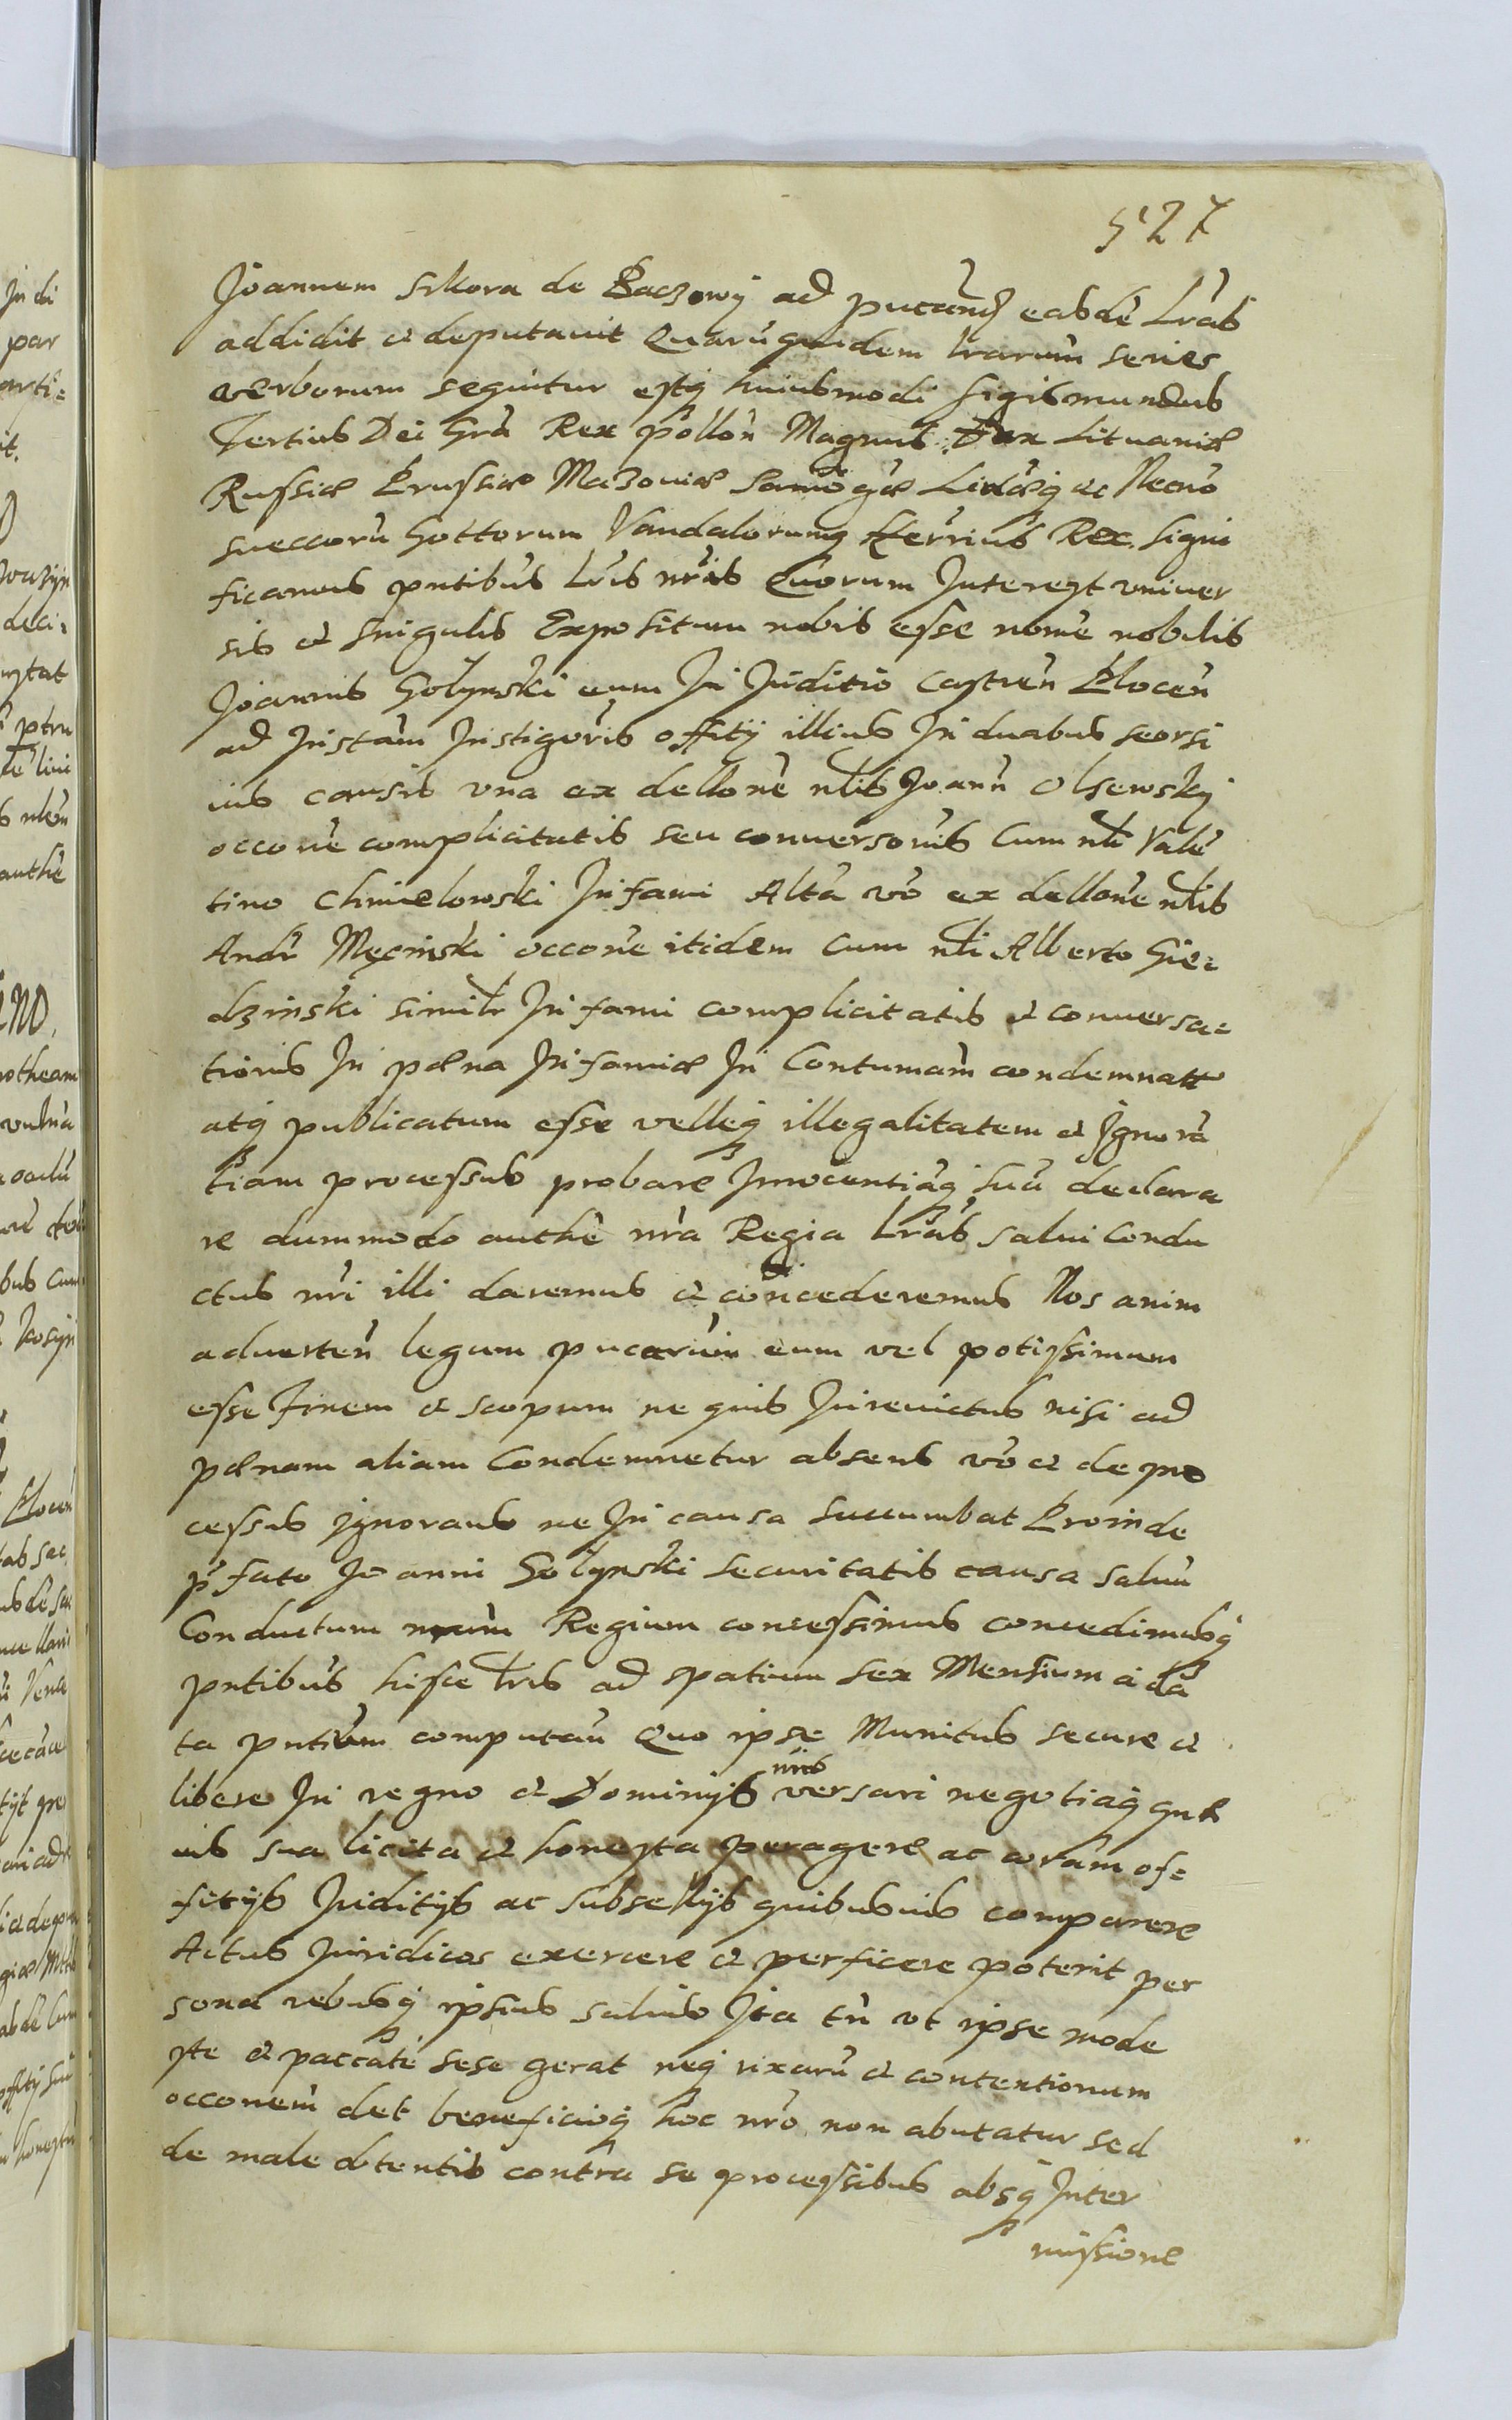 527
Joannem Sikora de Baczowij ad pucand eabdē Lrab
addidit et deputavit Quarū quidem lrarum series
verborum sequitur estq huiusmodi Sigismundus
Tertius Dei Gra Rex pollon Magnus Dux Lituaniæ
Russiæ Prussiæ Mazoviæ Samogæ Livæq ac Necno
Sueccorū Gottorum Vandalorumq Hærrius Rex. Signi
ficamus pntibus Lris nris Quorum Interest vniver
sis et singulis Expositum nobis esse nome nobilis
Joannis Golynski eum In Juditio Castren Plocen
ad Instam Instigoris offitij illius In duabus seorsi
vis causis vna ex dellone nlis Joann Olsewskij
occone complicitatis seu conversonis Cum nli Valē
tino Chmielowski Infami Altā vō ex dellone nlis
Andr Męcinski occone itidem cum nli Alberto Gie=
dzinski similr Infami complicitatis et conversa=
tionis In pæna Infamiæ In Contumam condemnatt
atq publicatum esse velleq illegalitatem et Ignorā
tiam processus probare Innocentiāq suā declara
re dummodo authē nra Regia Lrab salvi Condu
ctus nri illi daremus et concederemus Nos anim
adverten legum pucarum eum vel potissimum
esse finem et scopum ne quis Jurevictus nisi ad
pænam aliam Condemnetur absens vō et de pro
cessus ignorans ne In causa succumbat Proinde
pfato Joanni Golynski securitatis causa salvū
Conductum nrum Regium concessimus concedimusq
pntibus hisce lris ad spatium sex Mensium a da
ta pntium computan Quo ipse Munitus secure et
libere In regno et Dominijs nris versari negotiaq quæ
vis sua licita et honesta peragere ac coram of=
fitijs Juditijs ac subsellijs quibusvis comparere
Actus Juridicos exercere et perficere poterit per
sona rebusq ipsius salvis Ita tn ut ipse mode
ste et paccate sese gerat neq rixarū et contentionum
occonem det beneficioq hoc nro non abutatur sed
de male obtentis contra se processibus absq Inter
missione